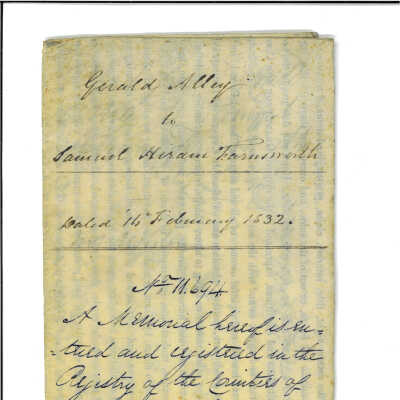 Gerald Alley
to
Samuel Hiram Farnsworth
Dated 14th February 1832.
No. 11.694
A Memorial hereof is en=
=tered and registered in the
Registry of the Counties of